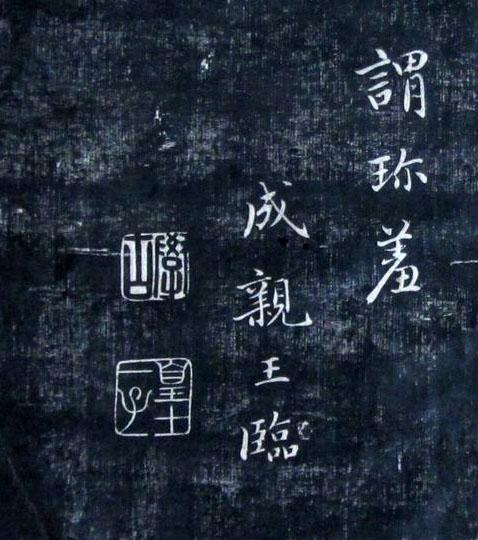 謂珍羞
成親王臨
皇十一子